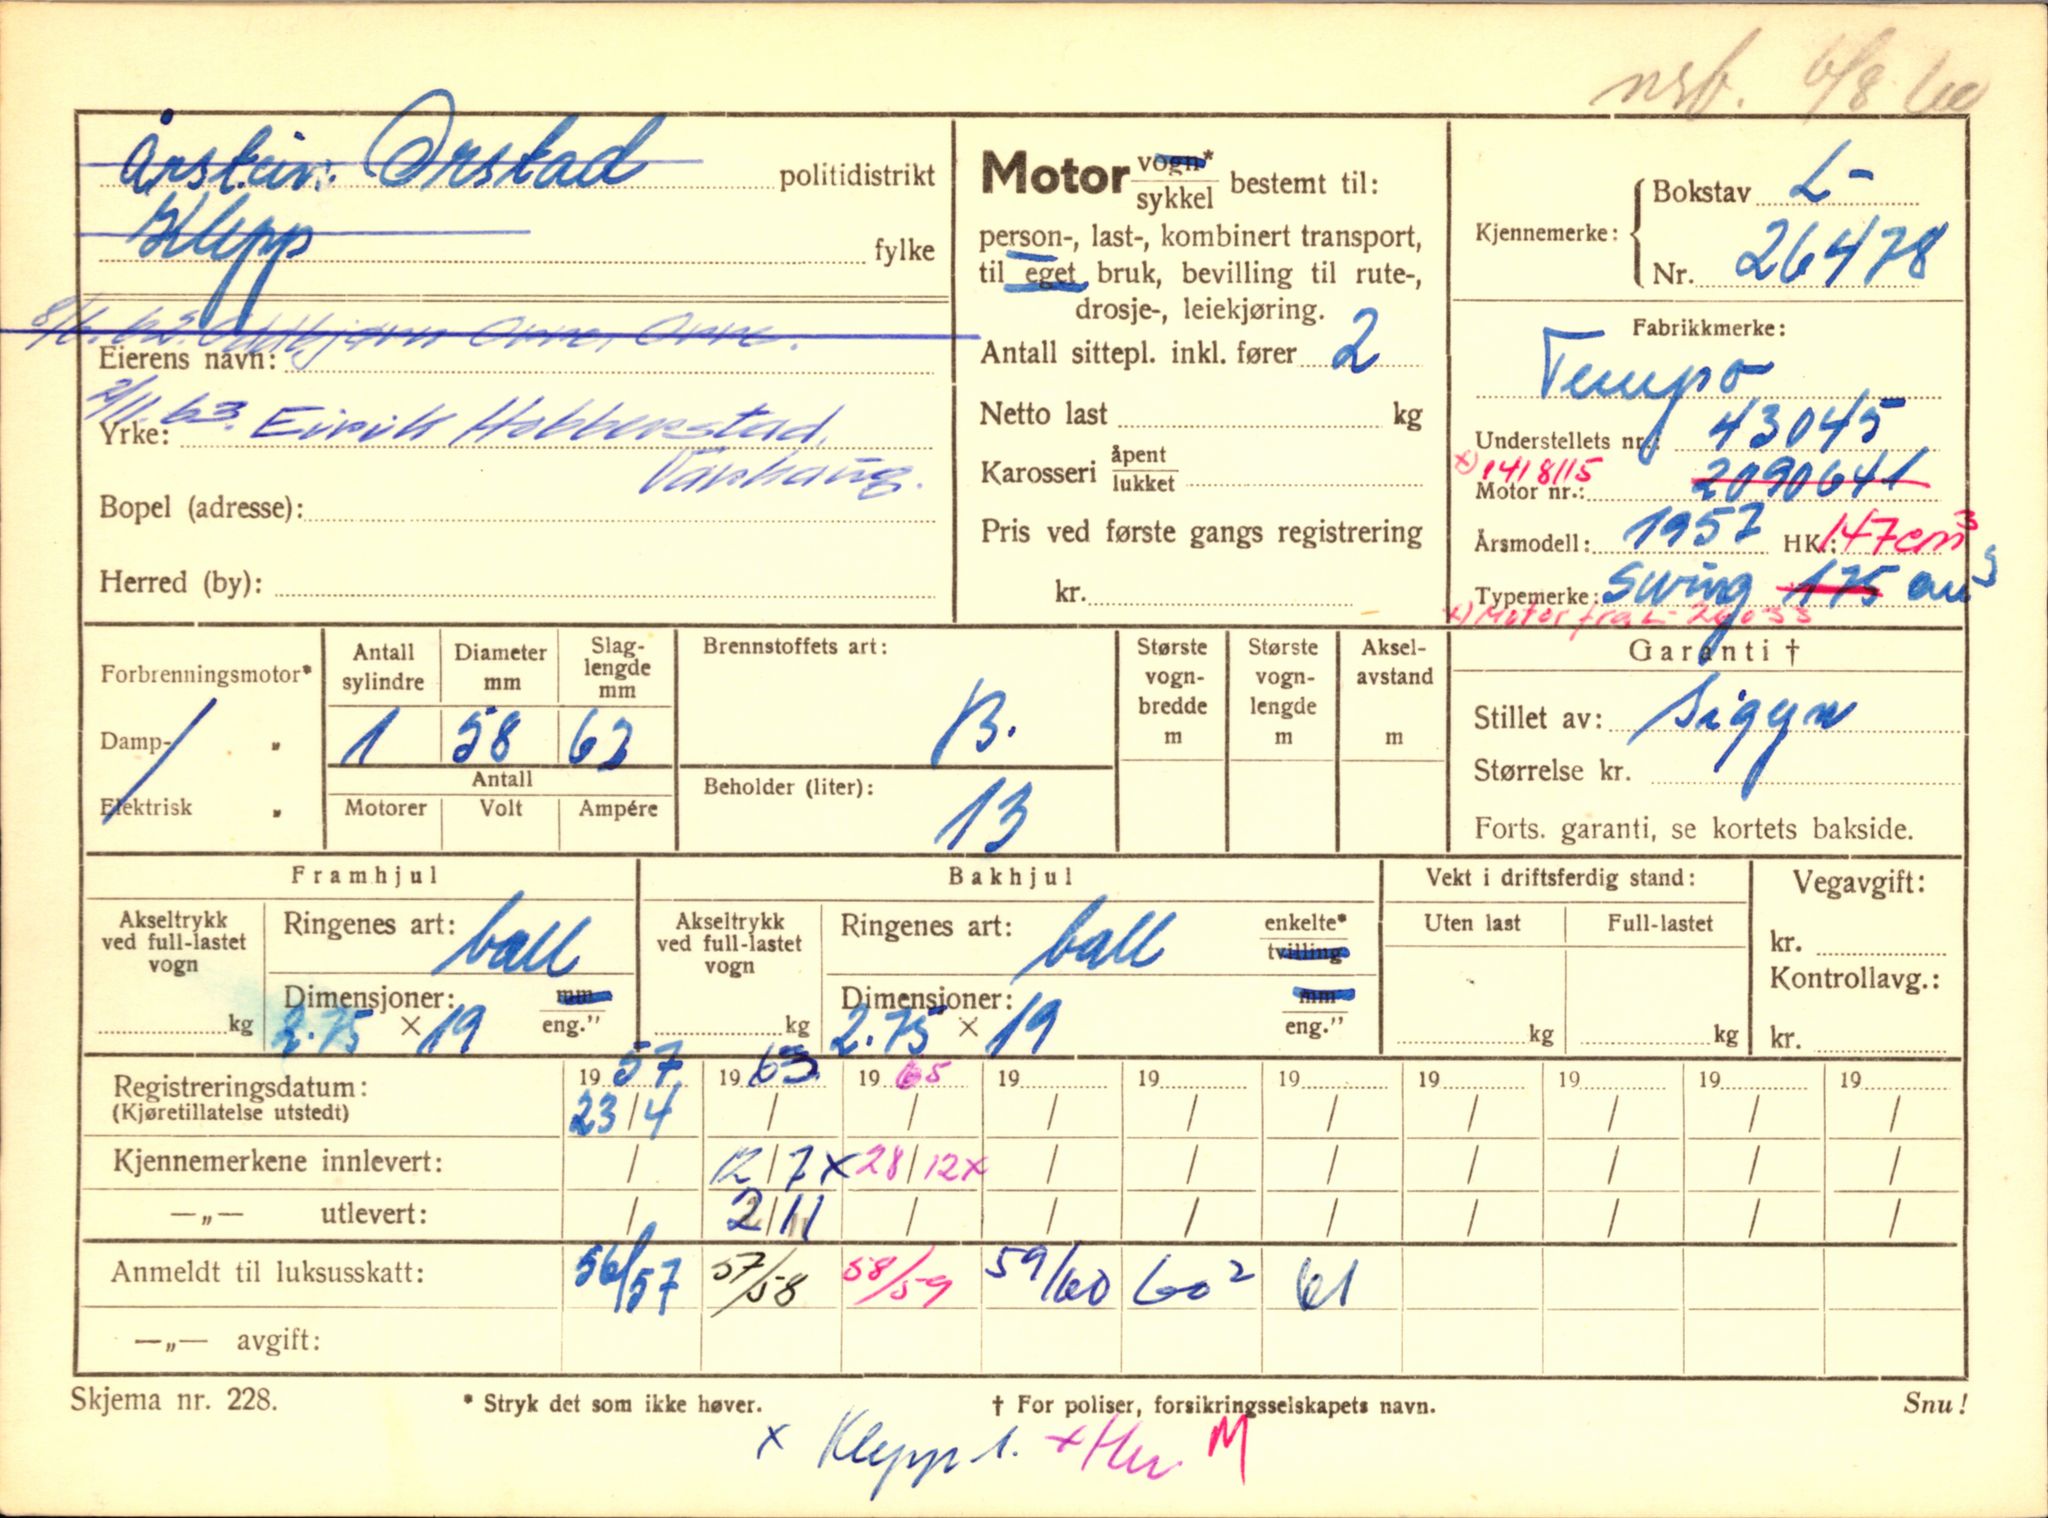 6/8 60
Årstein Ørstad politidistrikt
Klepp fylke
8/6.62. Oddbjørn Orre, Orre.
Eierens navn:
2/11.63. Eirik Hobberstad,
Yrke:
Varhaug.
Bopel (adresse):
Herred (by):
Motor vogn* / sykkel bestemt til:
person-, last-, kombinert transport,
til eget bruk, bevilling til rute-,
drosje-, leiekjøring.
Antall sittepl. inkl. fører 2
Netto last kg
Karosseri åpent / lukket
Pris ved første gangs registrering
kr.
Kjennemerke: Bokstav L-
Nr. 26478
Fabrikkmerke:
Tempo
Understellets nr.: 43045
x) 1418115
Motor nr.: 2090641
Årsmodell: 1957 HK.: 147cm³
Typemerke: Swing 175 cm³
x) Motor fra L-26033
Forbrenningsmotor*
Damp- „
Elektrisk „
Antall sylindre Diameter mm Slag-lengde mm
1 58 63
Antall
Motorer Volt Ampére
Brennstoffets art:
B.
Beholder (liter):
13
Største vogn-bredde m
Største vogn-lengde m
Aksel-avstand m
Garanti †
Stillet av: Sigyn
Størrelse kr.
Forts. garanti, se kortets bakside.
Framhjul
Akseltrykk ved full-lastet vogn kg
Ringenes art: ball
Dimensjoner: mm
2.75 × 19 eng."
Bakhjul
Akseltrykk ved full-lastet vogn kg
Ringenes art: ball enkelte* tvilling
Dimensjoner: mm
2.75 × 19 eng."
Vekt i driftsferdig stand:
Uten last Full-lastet
kg kg
Vegavgift:
kr.
Kontrollavg.:
kr.
Registreringsdatum: 19 57 19 63 19 65 19 19 19 19 19 19 19
(Kjøretillatelse utstedt) 23/4 / / / / / / / / /
Kjennemerkene innlevert: / 12/7 x 28/12 x / / / / / / /
—„— utlevert: / 2/11 / / / / / / / /
Anmeldt til luksusskatt: 56/57 57/58 58/59 59/60 60² 61
—„— avgift:
Skjema nr. 228. * Stryk det som ikke høver. † For poliser, forsikringsselskapets navn. Snu!
x Klepp l. x Hv. M